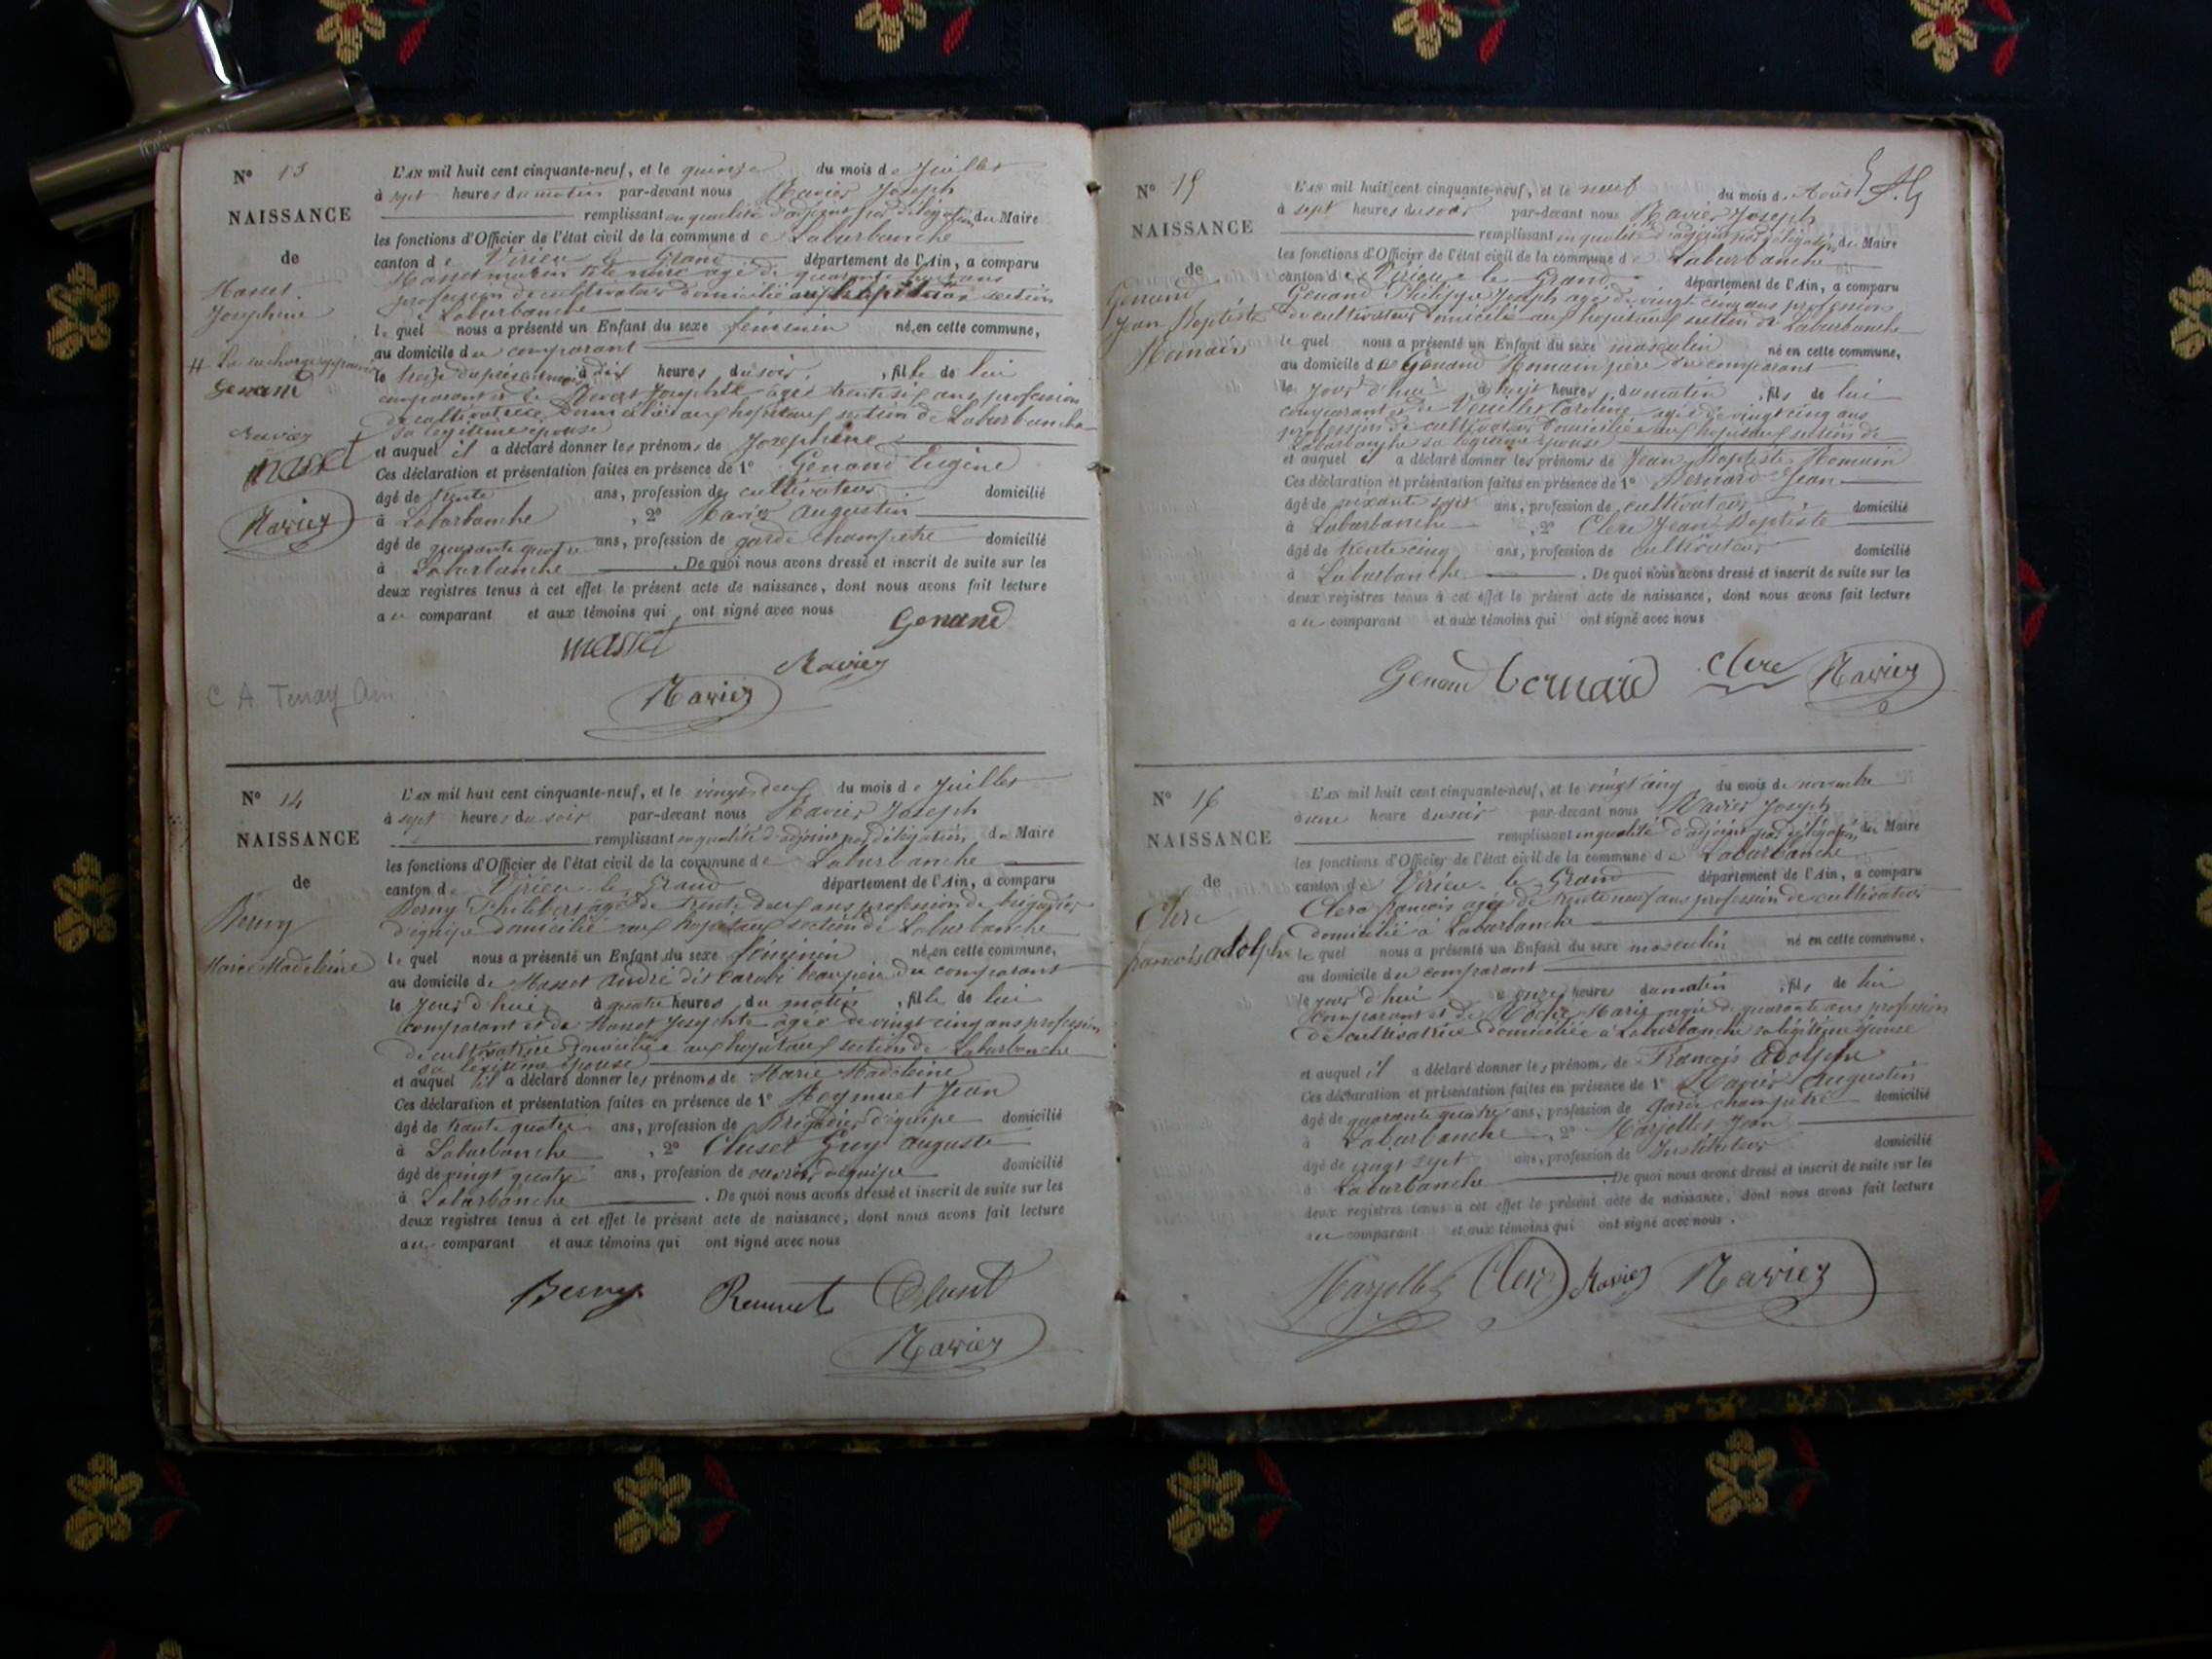 N° 13
NAISSANCE
de
Masset
Josephine
Genand
Ravier
Masset
Raviez
L'AN mil huit cent cinquante-neuf, et le quinze du mois de Juillet
à sept heures du matin par-devant nous Ravier Joseph
remplissant en qualité d'adjoint par délégation du Maire
les fonctions d'Officier de l'état civil de la commune de Laburbanche
canton de Virieu le Grand département de l'Ain, a comparu
Masset agé de quarante ans
profession de cultivateur domicilié aux hopitaux section
de Laburbanche
lequel nous a présenté un Enfant du sexe féminin né, en cette commune,
au domicile du comparant
le treize du présent mois à dix heures du soir, fille de lui
comparant et de Josephte agée trente six ans profession
de cultivatrice domiciliée aux hopitaux section de Laburbanche
sa légitime épouse
et auquel il a déclaré donner les prénoms de Josephine
Ces déclaration et présentation faites en présence de 1° Genand Eugène
âgé de trente ans, profession de cultivateur domicilié
à Laburbanche, 2° Ravier Augustin
âgé de quarante quatre ans, profession de garde champetre domicilié
à Laburbanche. De quoi nous avons dressé et inscrit de suite sur les
deux registres tenus à cet effet le présent acte de naissance, dont nous avons fait lecture
au comparant et aux témoins qui ont signé avec nous
Genand
Masset
Ravier
Raviez
C A Tenay Ain
N° 14
NAISSANCE
de
Berny
Marie Madeleine
L'AN mil huit cent cinquante-neuf, et le vingt deux du mois de Juillet
à sept heures du soir par-devant nous Ravier Joseph
remplissant en qualité d'adjoint par délégation du Maire
les fonctions d'Officier de l'état civil de la commune de Laburbanche
canton de Virieu le Grand département de l'Ain, a comparu
Berny Philibert agé de trente deux ans profession de brigadier
d'équipe domicilié aux hopitaux section de Laburbanche
lequel nous a présenté un Enfant du sexe féminin né, en cette commune,
au domicile de Masset André dit Carabi beaupère du comparant
le jour d'hui à quatre heures du matin, fille de lui
comparant et de Masset Josephte agée de vingt cinq ans profession
de cultivatrice domiciliée aux hopitaux section de Laburbanche
sa légitime épouse
et auquel il a déclaré donner les prénoms de Marie Madeleine
Ces déclaration et présentation faites en présence de 1° Reymuet Jean
âgé de trente quatre ans, profession de Brigadier d'équipe domicilié
à Laburbanche, 2° Clusel Guy Auguste
âgé de vingt quatre ans, profession de ouvrier d'équipe domicilié
à Laburbanche. De quoi nous avons dressé et inscrit de suite sur les
deux registres tenus à cet effet le présent acte de naissance, dont nous avons fait lecture
au comparant et aux témoins qui ont signé avec nous
Berny
Raviez
N° 15
NAISSANCE
de
Genand
Jean Baptiste
Romain
L'AN mil huit cent cinquante-neuf, et le neuf du mois d'Août
à sept heures du soir par-devant nous Ravier Joseph
remplissant en qualité d'adjoint par délégation du Maire
les fonctions d'Officier de l'état civil de la commune de Laburbanche
canton de Virieu le Grand département de l'Ain, a comparu
Genand Philippe Joseph agé de vingt cinq ans profession
de cultivateur domicilié aux hopitaux section de Laburbanche
lequel nous a présenté un Enfant du sexe masculin né en cette commune,
au domicile de Genand Romain père du comparant
le jour d'hui à huit heures du matin, fils de lui
comparant et de Caroline agée de vingt cinq ans
profession de cultivatrice domiciliée aux hopitaux section de
Laburbanche sa légitime épouse
et auquel il a déclaré donner les prénoms de Jean Baptiste Romain
Ces déclaration et présentation faites en présence de 1° Bernard Jean
âgé de soixante sept ans, profession de cultivateur domicilié
à Laburbanche, 2° Clerc Jean Baptiste
âgé de trente cinq ans, profession de cultivateur domicilié
à Laburbanche. De quoi nous avons dressé et inscrit de suite sur les
deux registres tenus à cet effet le présent acte de naissance, dont nous avons fait lecture
au comparant et aux témoins qui ont signé avec nous
Genand Bernard Clerc Raviez
N° 16
NAISSANCE
de
Clerc
françois adolphe
L'AN mil huit cent cinquante-neuf, et le vingt cinq du mois de novembre
à une heure du soir par-devant nous Ravier Joseph
remplissant en qualité d'adjoint par délégation du Maire
les fonctions d'Officier de l'état civil de la commune de Laburbanche
canton de Virieu le Grand département de l'Ain, a comparu
Clerc françois agé de trente neuf ans profession de cultivateur
domicilié à Laburbanche
lequel nous a présenté un Enfant du sexe masculin né en cette commune,
au domicile du comparant
le jour d'hui à onze heures du matin, fils de lui
comparant et de Marie agée de quarante ans profession
de cultivatrice domiciliée à Laburbanche sa légitime épouse
et auquel il a déclaré donner les prénoms de François Adolphe
Ces déclaration et présentation faites en présence de 1° Ravier Augustin
âgé de quarante quatre ans, profession de garde champetre domicilié
à Laburbanche, 2° Marjollet Jean
âgé de vingt sept ans, profession de Instituteur domicilié
à Laburbanche. De quoi nous avons dressé et inscrit de suite sur les
deux registres tenus à cet effet le présent acte de naissance, dont nous avons fait lecture
au comparant et aux témoins qui ont signé avec nous.
Marjollet Clerc Ravier Raviez